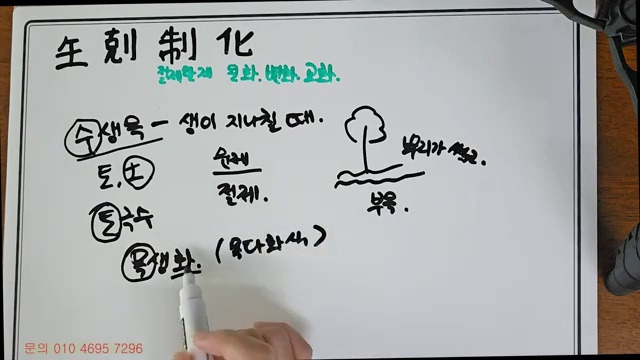 生 剋 制 化
절제, 완제 문화, 변화, 교화.
수생목 - 생이 지나칠 때.
토, 土
절제.
뿌리가 썩는.
부목.
토극수
목생화. (목다화식)
문의 010 4695 7296